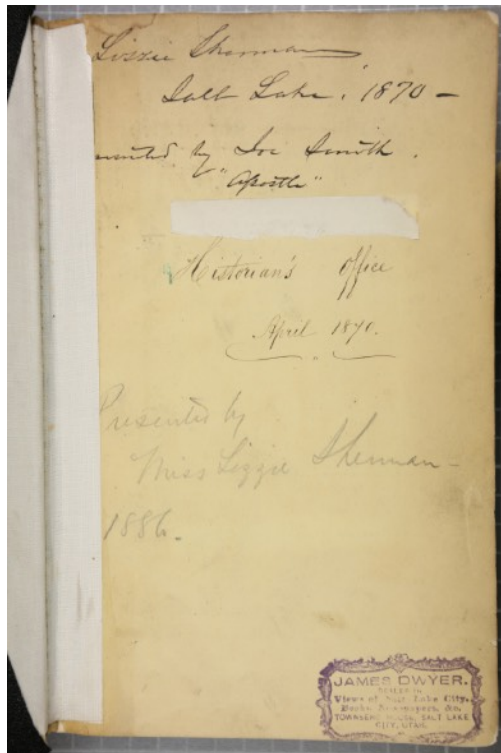 Lizzie Sherman
Salt Lake. 1870 -
by Joe Smith.
"Apostle"
Historian's Office
April 1870.
Presented by
Miss Lizzie Sherman -
1886.
JAMES DWYER.
DEALER IN
Views of Salt Lake City,
Books, Newspapers, &c.
TOWNSEND HOUSE, SALT LAKE
CITY, UTAH.